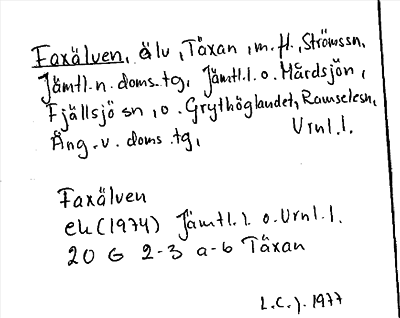 Faxälven, älv, Täxan, m.fl, Strömssn,
Jämtl.n.doms.tg, Jämtl.l.o. Mårdsjön,
Fjällsjö sn, o. Grythöglandet, Ramselesn,
Äng.v. doms.tg, Vrnl.l.
Faxälven
ek(1974) Jämtl.l. o.Vrnl.l.
20 G 2-3 a-b Täxan
L.C.J. 1977